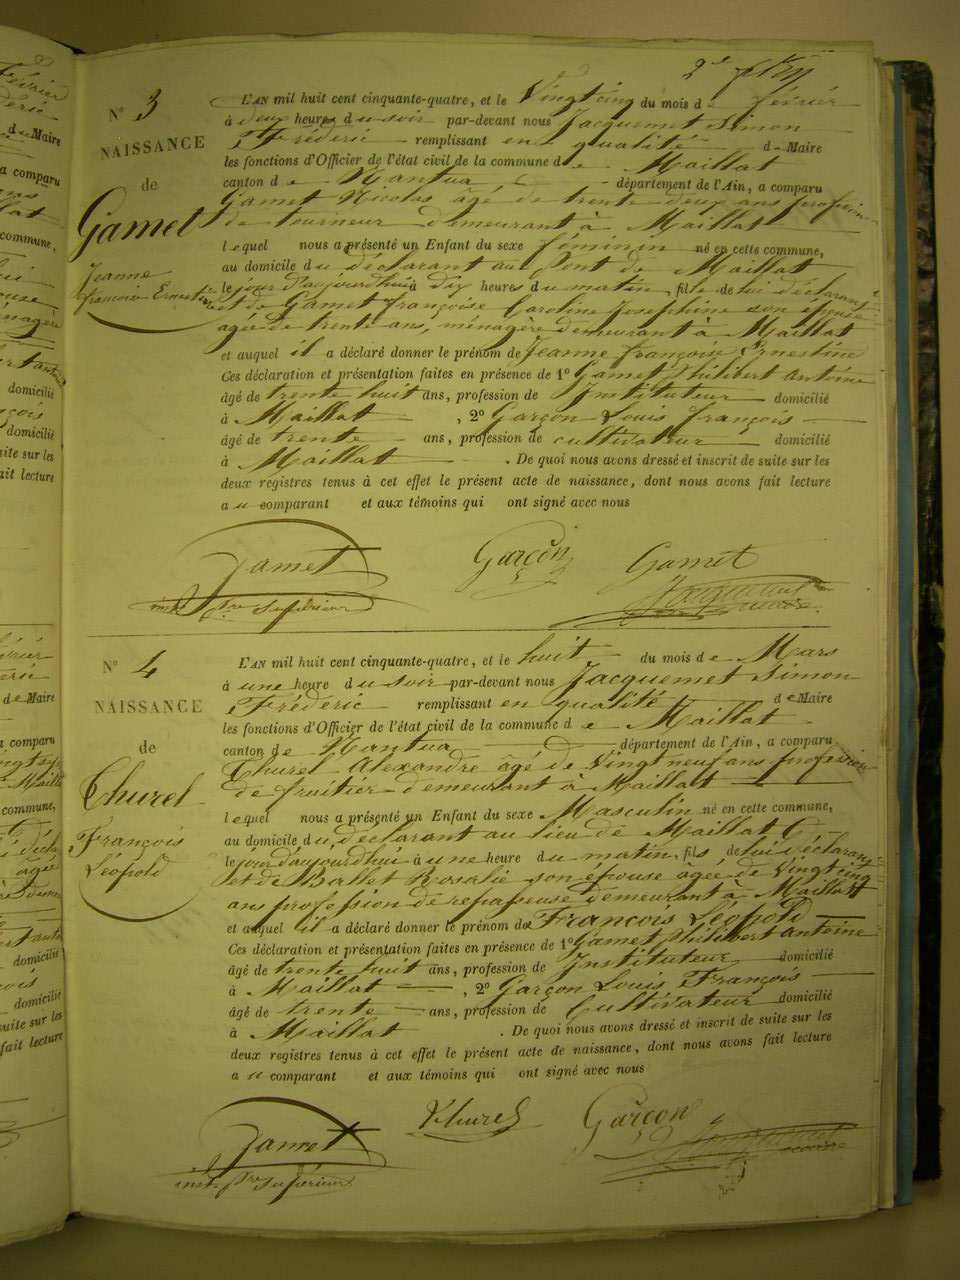 N° 3
NAISSANCE
de
Gamet
Jeanne
françoise Ernestine
L'AN mil huit cent cinquante-quatre, et le Vingt cinq du mois de février
à deux heures du soir par-devant nous Jacquemet Simon
Fréderic remplissant en qualité de Maire
les fonctions d'Officier de l'état civil de la commune de Maillat
canton de Nantua département de l'Ain, a comparu
Gamet Nicolas âgé de trente deux ans profession
de tourneur demeurant à Maillat
lequel nous a présenté un Enfant du sexe féminin né en cette commune,
au domicile du déclarant au Pont de Maillat
le jour d'aujourdhui à dix heures du matin, fille de lui déclarant
et de Gamet françoise Caroline Josephine son épouse
agée de trente ans, ménagère demeurant à Maillat
et auquel il a déclaré donner le prénom de Jeanne françoise Ernestine
Ces déclaration et présentation faites en présence de 1° Gamet Philibert Antoine
âgé de trente huit ans, profession de Instituteur domicilié
à Maillat , 2° Garçon Louis françois
âgé de trente ans, profession de cultivateur domicilié
à Maillat . De quoi nous avons dressé et inscrit de suite sur les
deux registres tenus à cet effet le présent acte de naissance, dont nous avons fait lecture
au comparant et aux témoins qui ont signé avec nous
Gamet Garçon Gamet
inst. supérieur
N° 4
NAISSANCE
de
Thurel
François
Léopold
L'AN mil huit cent cinquante-quatre, et le huit du mois de Mars
à une heure du soir par-devant nous Jacquemet Simon
Fréderic remplissant en qualité de Maire
les fonctions d'Officier de l'état civil de la commune de Maillat
canton de Nantua département de l'Ain, a comparu
Thurel Alexandre âgé de Vingt neuf ans profession
de fruitier demeurant à Maillat
lequel nous a présenté un Enfant du sexe Masculin né en cette commune,
au domicile du déclarant au lieu de Maillat
le jour d'aujourdhui à une heure du matin, fils de lui déclarant
et de Ballet Rosalie son épouse agée de Vingt cinq
ans profession de repasseuse demeurant à Maillat
et auquel il a déclaré donner le prénom de François Léopold
Ces déclaration et présentation faites en présence de 1° Gamet Philibert Antoine
âgé de trente huit ans, profession de Instituteur domicilié
à Maillat , 2° Garçon Louis François
âgé de trente ans, profession de Cultivateur domicilié
à Maillat . De quoi nous avons dressé et inscrit de suite sur les
deux registres tenus à cet effet le présent acte de naissance, dont nous avons fait lecture
au comparant et aux témoins qui ont signé avec nous
Gamet Thurel Garçon
inst. supérieur